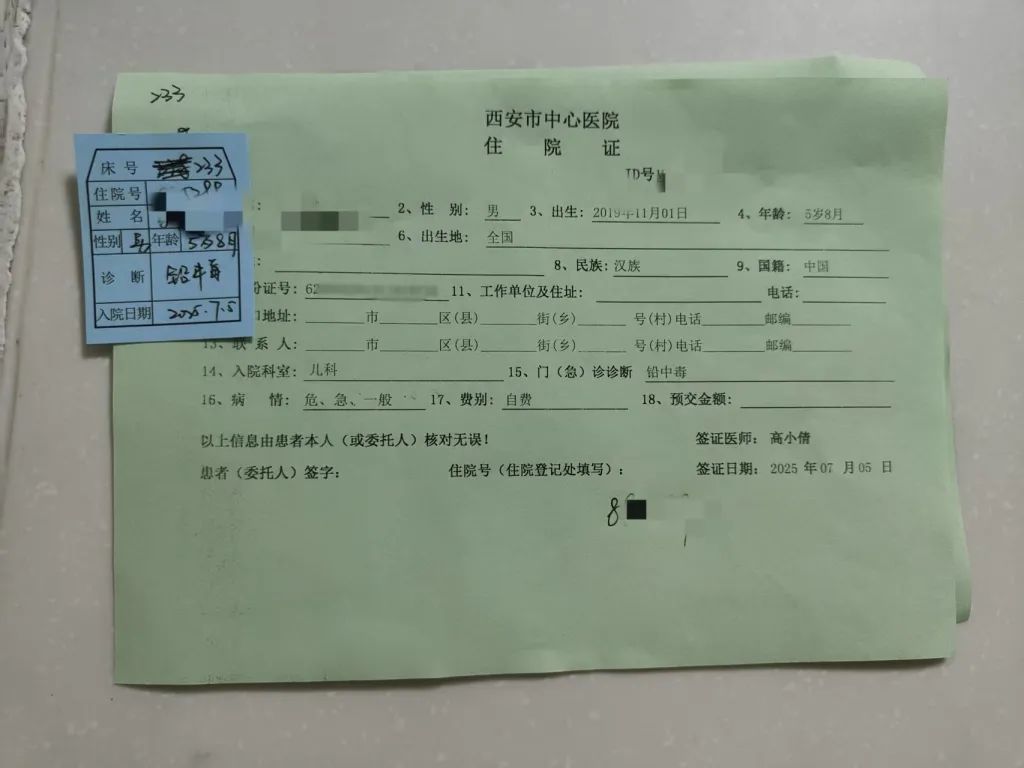 233
西安市中心医院
住 院 证
ID号
床号 233
住院号
姓 名
性别 男 年龄 5岁8月
诊 断 铅中毒
入院日期 2025.7.5
2、性 别: 男 3、出生: 2019年11月01日 4、年龄: 5岁8月
6、出生地: 全国
8、民族: 汉族 9、国籍: 中国
份证号: 62 11、工作单位及住址: 电话:
口地址: 市 区(县) 街(乡) 号(村)电话 邮编
13、联 系 人: 市 区(县) 街(乡) 号(村)电话 邮编
14、入院科室: 儿科 15、门（急）诊诊断 铅中毒
16、病 情: 危、急、一般 17、费别: 自费 18、预交金额:
以上信息由患者本人（或委托人）核对无误! 签证医师: 高小倩
患者（委托人）签字: 住院号（住院登记处填写）: 签证日期: 2025 年 07 月 05 日
8